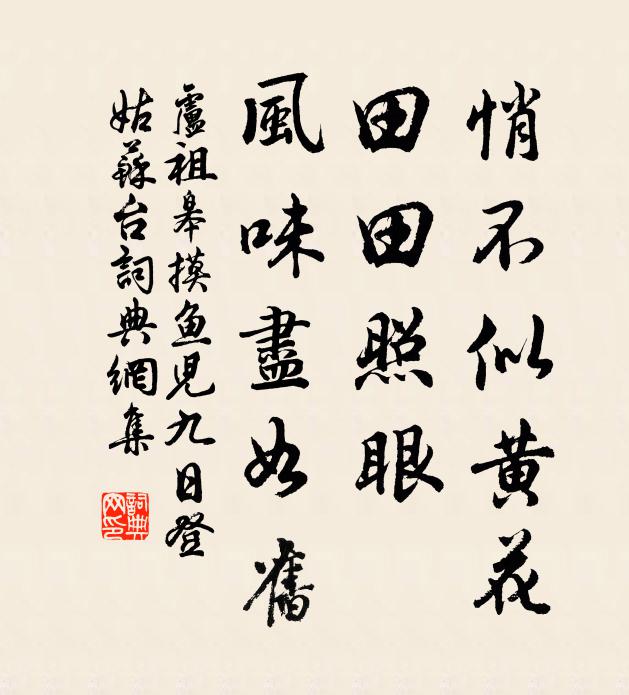 悄不似黄花
田田照眼
風味盡如舊
盧祖皋摸魚児九日登
姑蘇台詞典網集
詞典網印